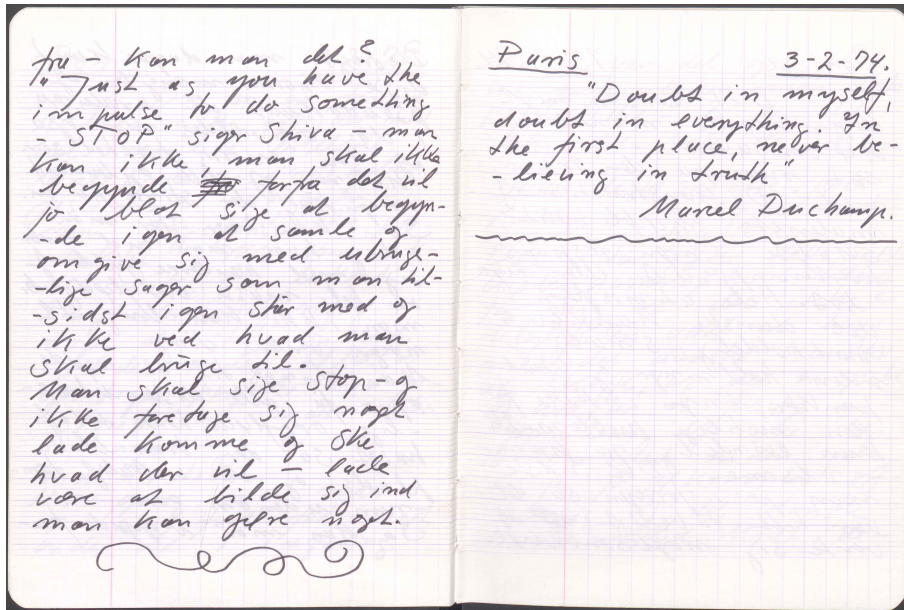 fra – kan man det?
"Just as you have the
impulse to do something
- STOP" siger Shiva – man
kan ikke, man skal ikke
begynde forfra det vil
jo blot sige at begyn-
-de igen at samle og
omgive sig med ubruge-
-lige sager som man til-
-sidst igen står med og
ikke ved hvad man
skal bruge til.
Man skal sige stop – og
ikke foretage sig noget
lade komme og ske
hvad der vil – lade
være at bilde sig ind
man kan gøre noget.
Paris 3-2-74.
"Doubt in myself,
doubt in everything. In
the first place, never be-
-lieving in truth"
Marcel Duchamp.